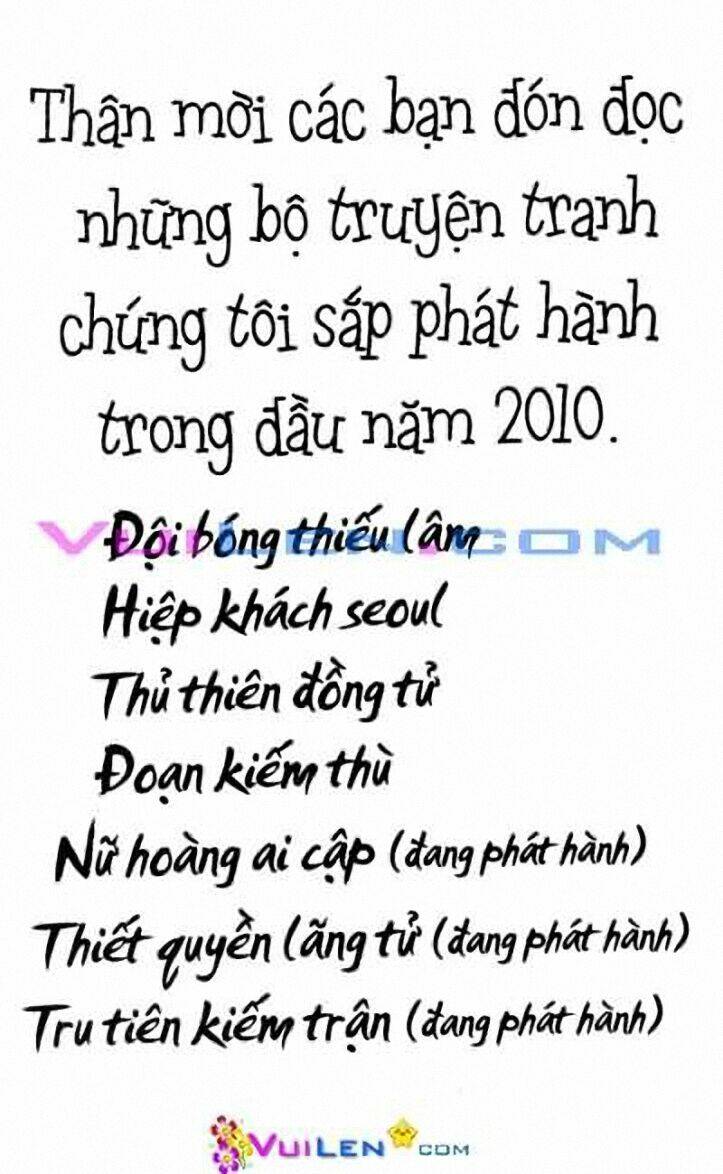 Thân mời các bạn đón đọc
những bộ truyện tranh
chúng tôi sắp phát hành
trong đầu năm 2010.
VUILEN.COM
Đội bóng thiếu lâm
Hiệp khách seoul
Thủ thiên đồng tử
Đoạn kiếm thù
Nữ hoàng ai cập (đang phát hành)
Thiết quyền lãng tử (đang phát hành)
Tru tiên kiếm trận (đang phát hành)
VUILEN COM